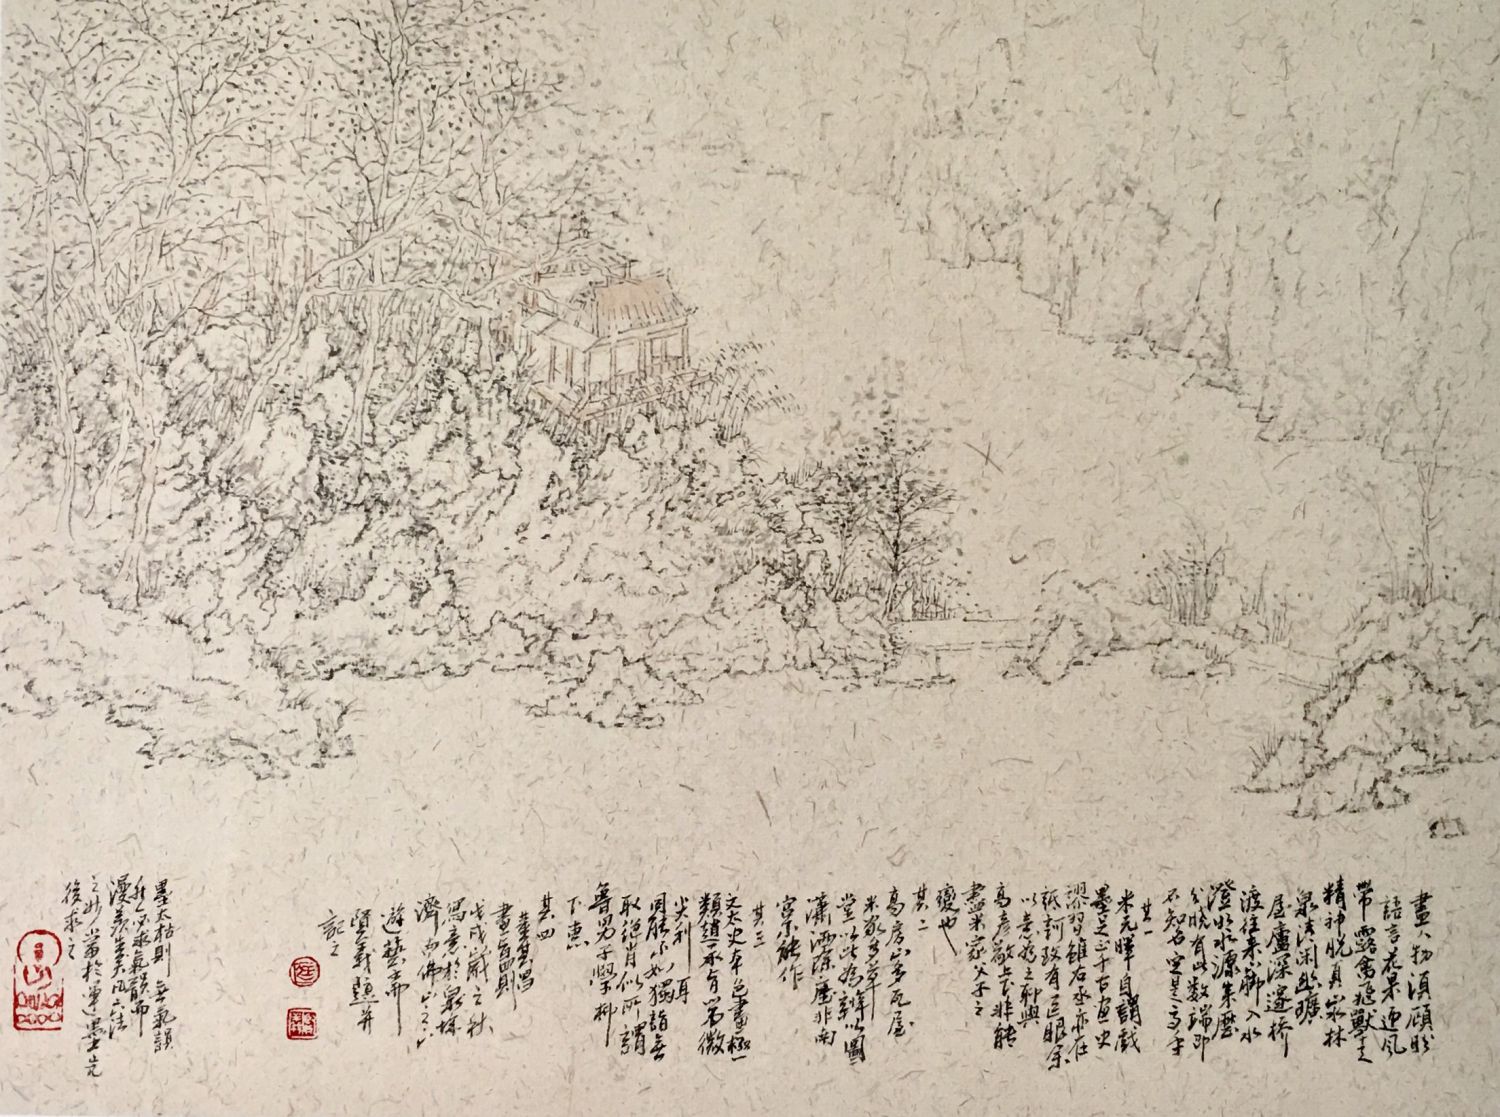 畫人物須顧盼
語言花果迎風
帶露禽飛獸走
精神脫真山水林
泉清閑幽曠
屋廬深邃橋
渡往來山腳入水
澄明水源來歷
分曉有此數端即
不知名定是高手
其一
米元暉自謂戲
墨足正千古畫史
謬習雖右丞亦在
詆訶致有巨眼余
以意為之聊與
高彥敬上下非能
盡米家父子之
變也
其二
高房山多瓦屋
米家多草
堂以此為辨此圖
瀟灑磨崖非南
宮不能作
其三
文太史本色畫極
類趙承旨第微
尖利耳
同能不如獨詣無
取絕肖似所謂
魯男子學柳
下惠
其四
董其昌
畫旨四則
戊戌歲之秋
寫意於泉城
濟南佛山之下
遊藝齋
賢義題並
記之
墨太枯則無氣韻
然必求氣韻而
漫羨生矣墨太
六法
之妙當於運墨先
後求之